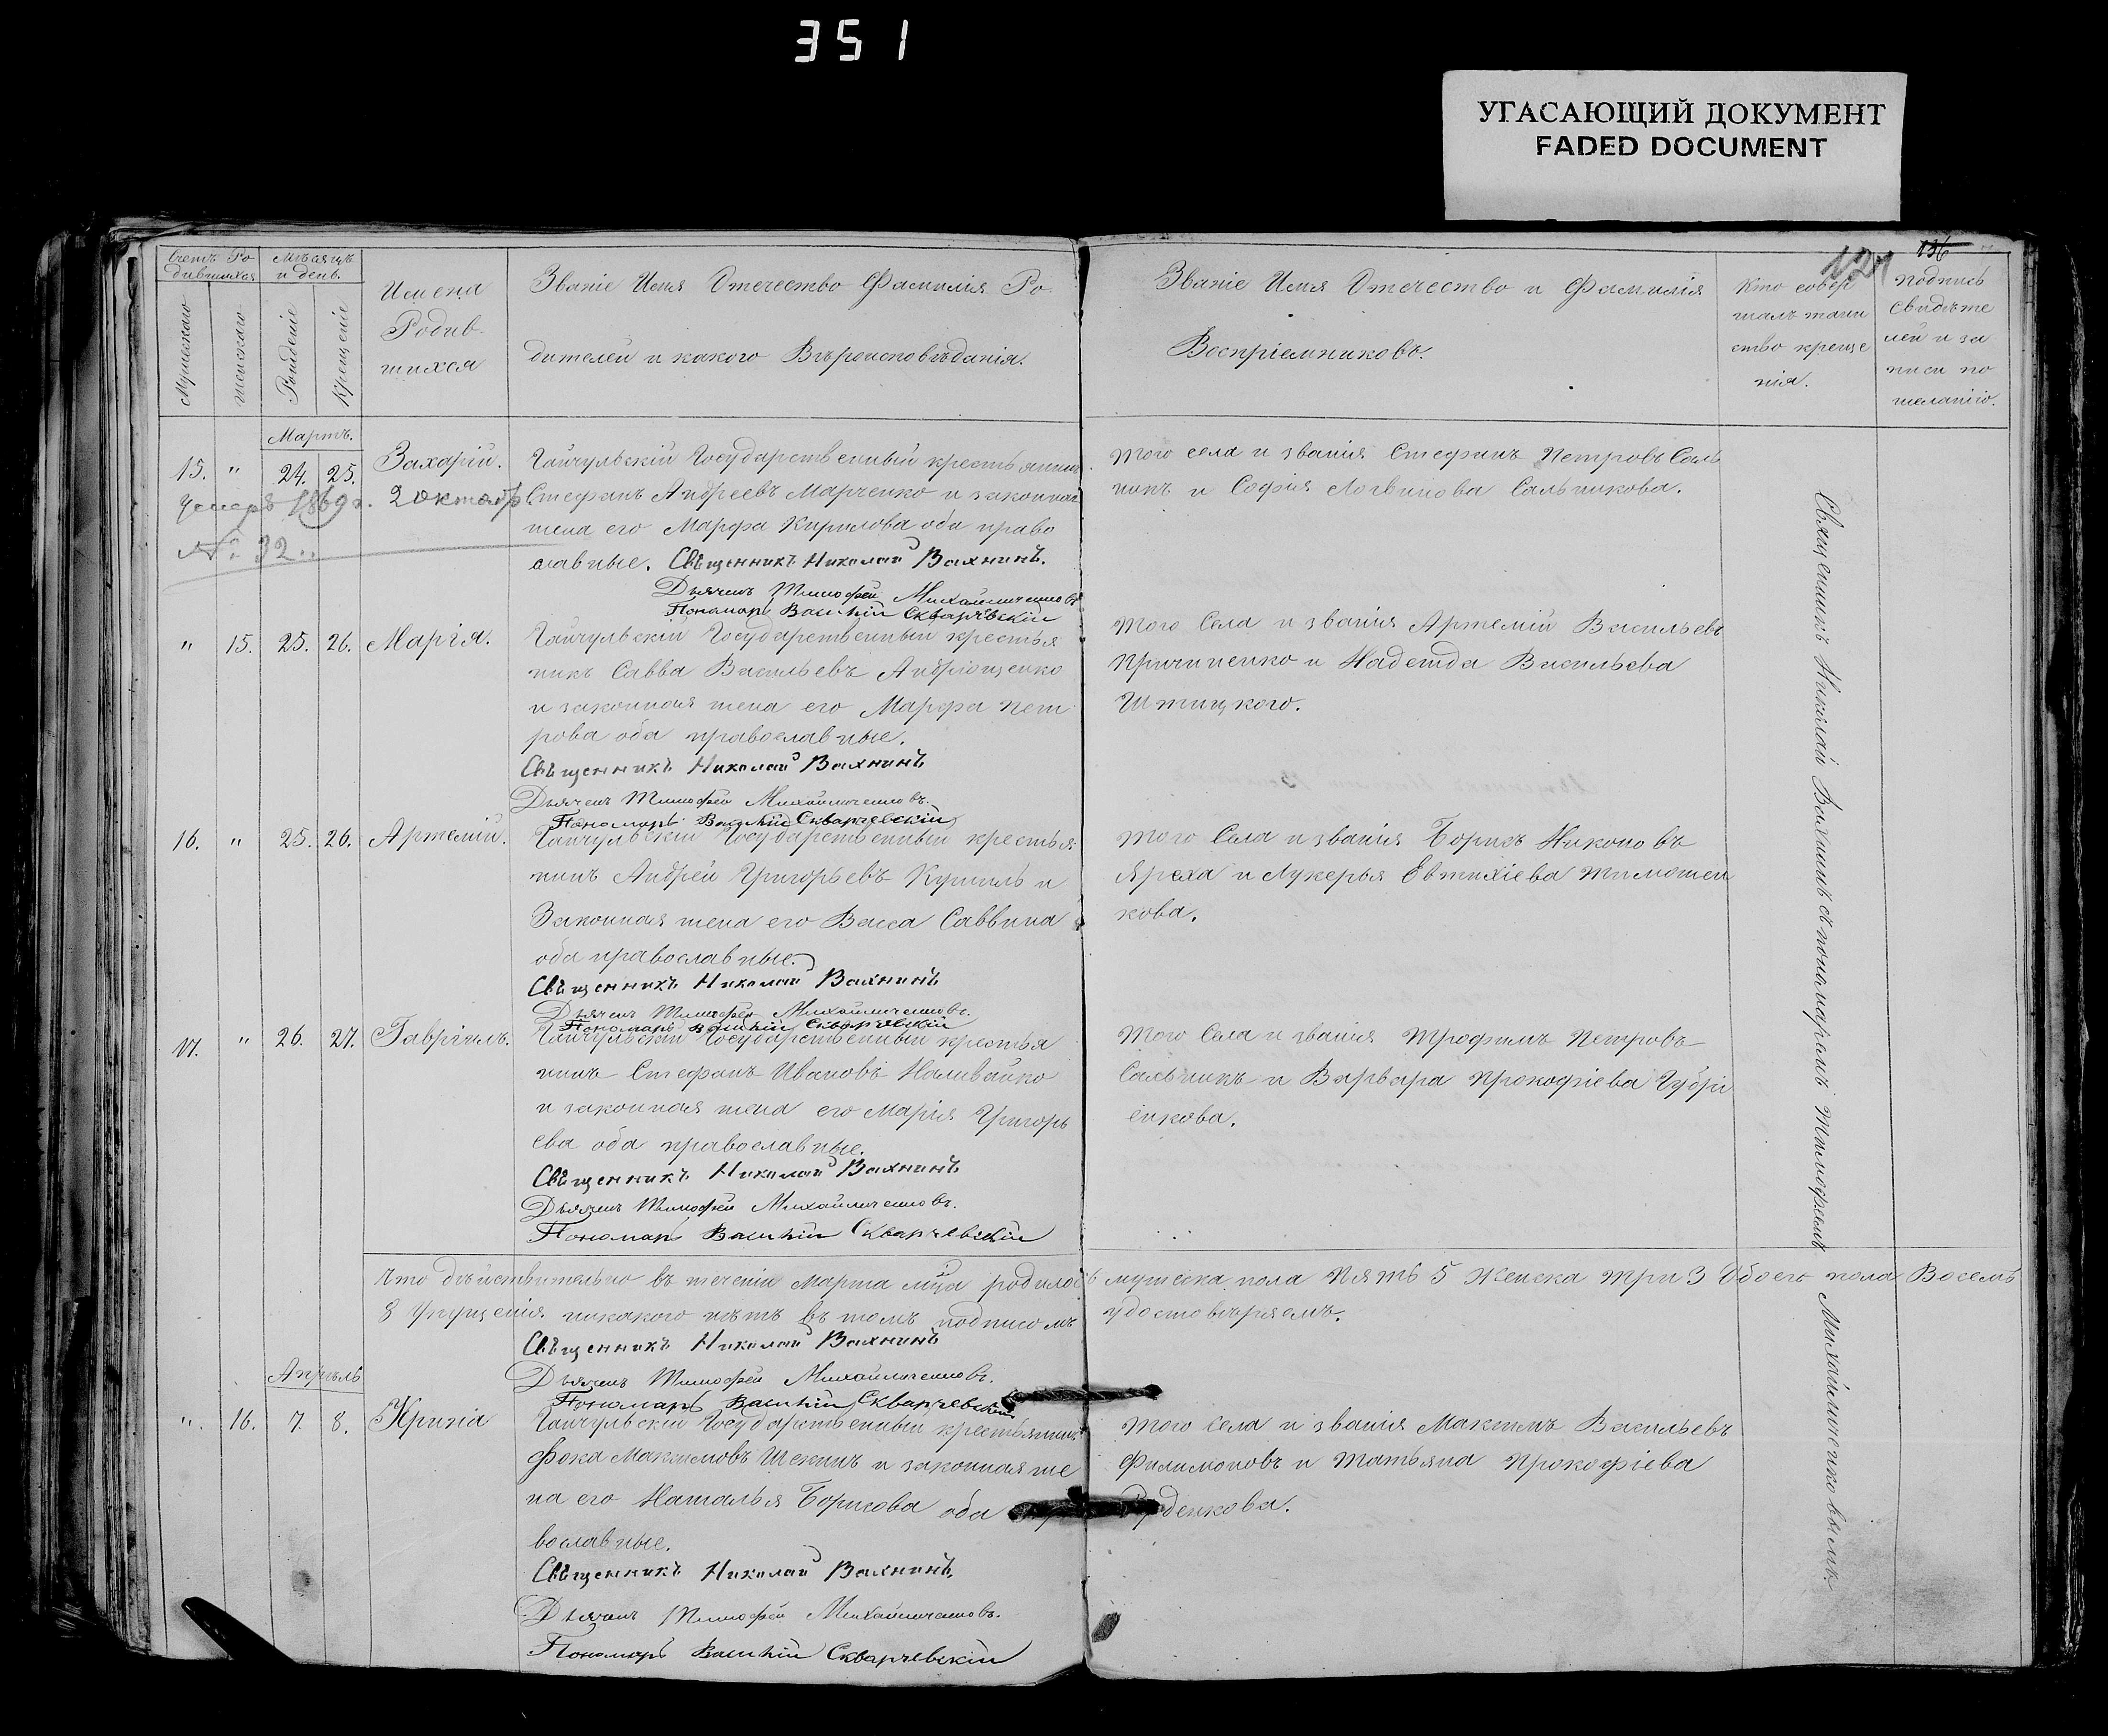 351
УГАСАЮЩИЙ ДОКУМЕНТ
FADED DOCUMENT
136
Счетъ Ро
дившихся
Мѣсяцъ
и день.
Мужескаго
Женскаго
Рожденіе
Крещеніе
Имена
Родив-
шихся
Званіе Имя Отечество Фамилія Ро-
дителей и какого Вѣроисповѣданія.
Званіе Имя Отечество и Фамилія
Воспріемниковъ.
Кто совер
шалъ таин
ство креще
нія.
Подпись
Свидѣте
лей и за
писи по
желанію.
Мартъ.
15. " 24. 25. Захарій.
1869 г. 2 октабр
№ 32
Гайчульскій Государственный крестьянинъ
Стефанъ Андреевъ Марченко и законная
жена его Марфа Кирилова оба право
славные. Священникъ Николай Вахнинъ.
Дьячекъ Тимофей Михайличенковъ
Пономарь Василій Скварчевскій
Того села и званія Стефанъ Петровъ Саль
никъ и Софія Логвинова Сальникова.
" 15. 25. 26. Марія.
Гайчульскій Государственный крестья
нинъ Савва Васильевъ Андрющенко
и законная жена его Марфа Пет
рова оба православные.
Священникъ Николай Вахнинъ
Дьячекъ Тимофей Михайличенковъ.
Пономарь Василій Скварчевскій
Того Села и званія Артемій Васильевъ
Причиненко и Надежда Васильева
Штицкого.
16. " 25. 26. Артемій.
Гайчульскій Государственный крестья
нинъ Андрей Григорьевъ Кушиль и
Законная жена его Васса Саввина
оба православные.
Священникъ Николай Вахнинъ
Дьячекъ Тимофей Михайличенковъ.
Пономарь Василій Скварчевскій
Того Села и званія Борисъ Никоновъ
Яреха и Лукерья Евтихіева Тимошен
кова.
17. " 26. 27. Гавріилъ.
Гайчульскій Государственный крестья
нинъ Стефанъ Ивановъ Наливайко
и законная жена его Марія Григорь
ева оба православные.
Священникъ Николай Вахнинъ
Дьячекъ Тимофей Михайличенковъ.
Пономарь Василій Скварчевскій
Того Села и званія Трофимъ Петровъ
Сальникъ и Варвара Прокофіева Губрі
енкова.
Что дѣйствительно въ теченіи Марта мца родилось мужеска пола Пять 5 Женска три 3 Обоего пола Восемь
8 упущенія никакого нѣтъ въ томъ подписомъ удостовѣряемъ.
Священникъ Николай Вахнинъ
Дьячекъ Тимофей Михайличенковъ.
Пономарь Василій Скварчевскій
Апрѣль
" 16. 7. 8. Ирина
Гайчульскій Государственный крестьянинъ
Фока Максимовъ Шекинъ и законная же
на его Наталья Борисова оба
вославные.
Священникъ Николай Вахнинъ.
Дьячекъ Тимофей Михайличенковъ.
Пономарь Василій Скварчевскій
Того Села и званія Максимъ Васильевъ
Филимоновъ и Татьяна Прокофіева
Священникъ Николай Вахнинъ съ пономаремъ Тимофеемъ Михайличенковымъ.